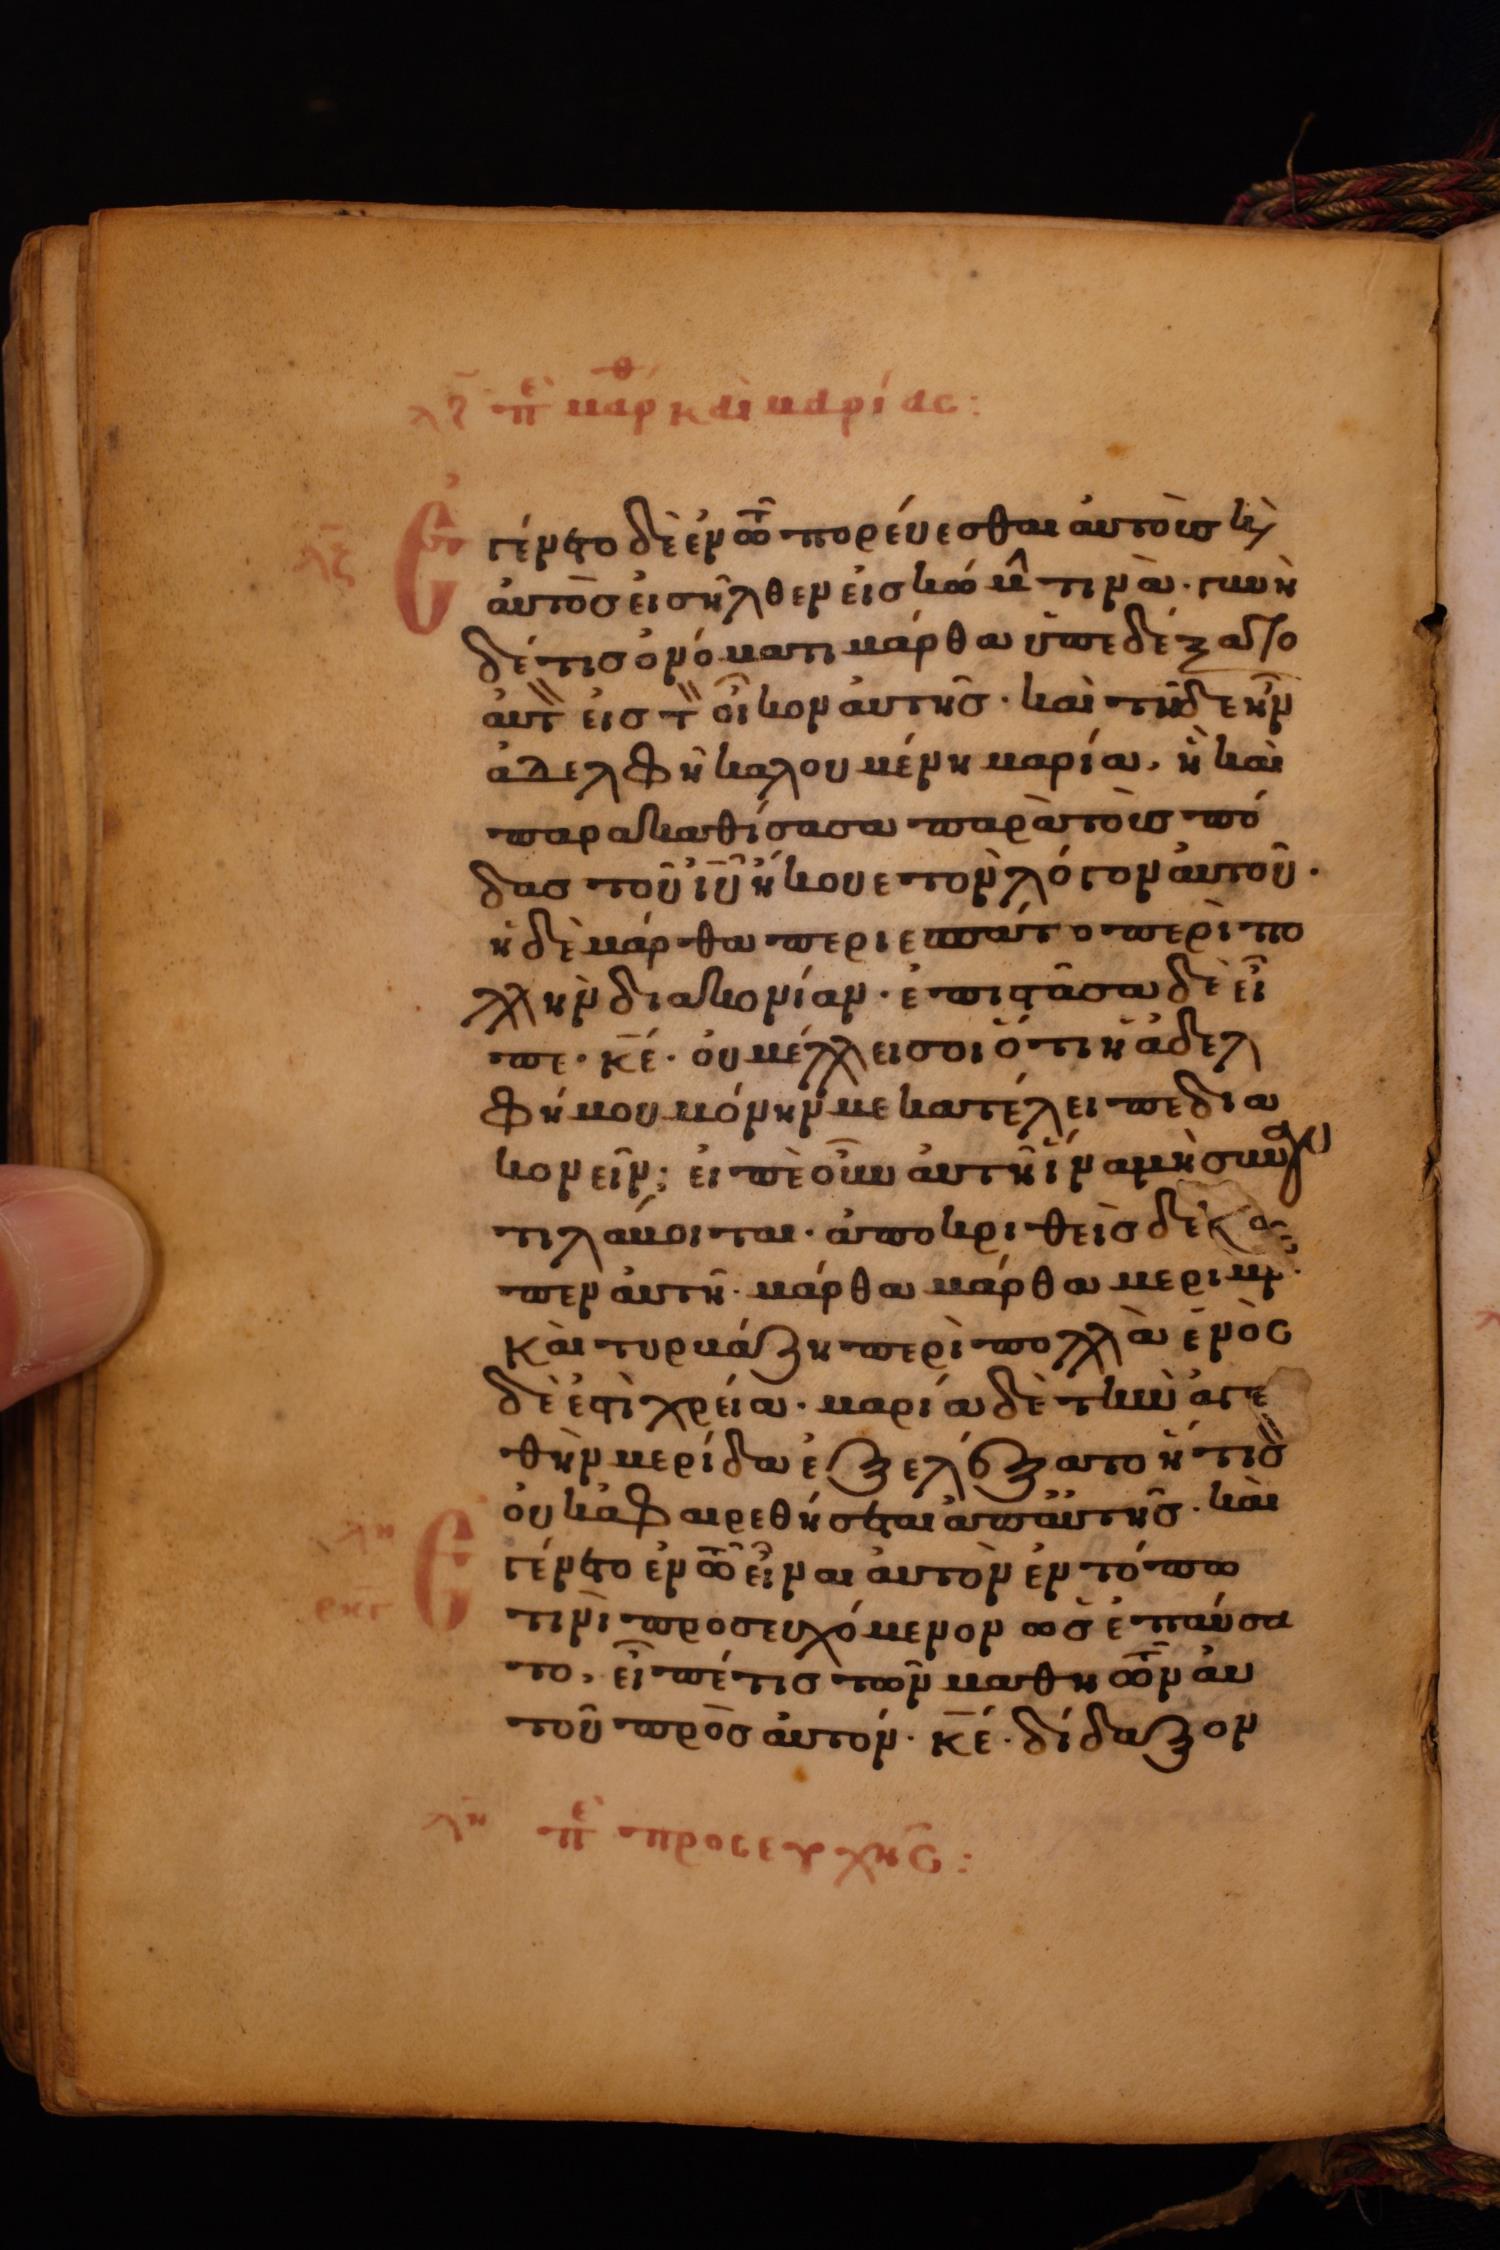 λζ πε μαρθ και μαρίας:
λζ Ἐγένετο δὲ ἐν τῶ πορεύεσθαι ἀυτοὺς κὶ
ἀυτὸσ εἰσῆλθεν εἰσ κώμ τινὰ· γυνὴ
δέ τισ ὀνόματι μάρθα ὑπεδέξατο
ἀυτ εἰσ τ οἶκον ἀυτῆσ· καὶ τῆδε ἦν
ἀδελφὴ καλουμένη μαρία, ἣ καὶ
παρακαθίσασα παρὰ τοὺσ πό
δασ τοῦ ἰῦ ἤκουε τὸν λόγον ἀυτοῦ·
ἡ δὲ μάρθα περιεσπάτο περὶ πο
λλὴν διακονίαν· ἐπιστᾶσα δὲ εἶ
πε· κέ· ὀυ μέλλει σοι ὅτι ἡ ἀδελ
φή μου μόνην με κατέλειπε δια
κονεῖν; εἰπὲ οὖν ἀυτῆ ἵνα μὴ συν
τιλάμοιται· ἀποκριθεὶσ δὲ
πεν ἀυτῆ· μάρθα μάρθα μεριμν
καὶ τυρμάζη περὶ πολλὰ ἑνὸς
δὲ ἐστὶ χρεία· μαρία δὲ τὴν ἀγα
θὴν μερίδα ἐξελέξατο ἥτισ
ὀυκ ἀφαιρεθήσεται ἀπ ἀυτῆσ· καὶ
λη Ἐγένετο ἐν τῶ εἶναι ἀυτὸν ἐν τόπω
ρκγ τινὶ προσευχόμενον ὡσ ἐπαύσα
το, εἶπέ τισ τῶν μαθητῶν ἀυ
τοῦ πρὸσ ἀυτόν· κέ· δίδαξον
λη πε προσευχῆς: